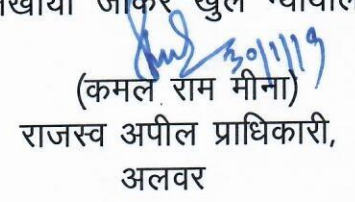 जाकर खुले
30/1/19
(कमल राम मीना)
राजस्व अपील प्राधिकारी,
अलवर